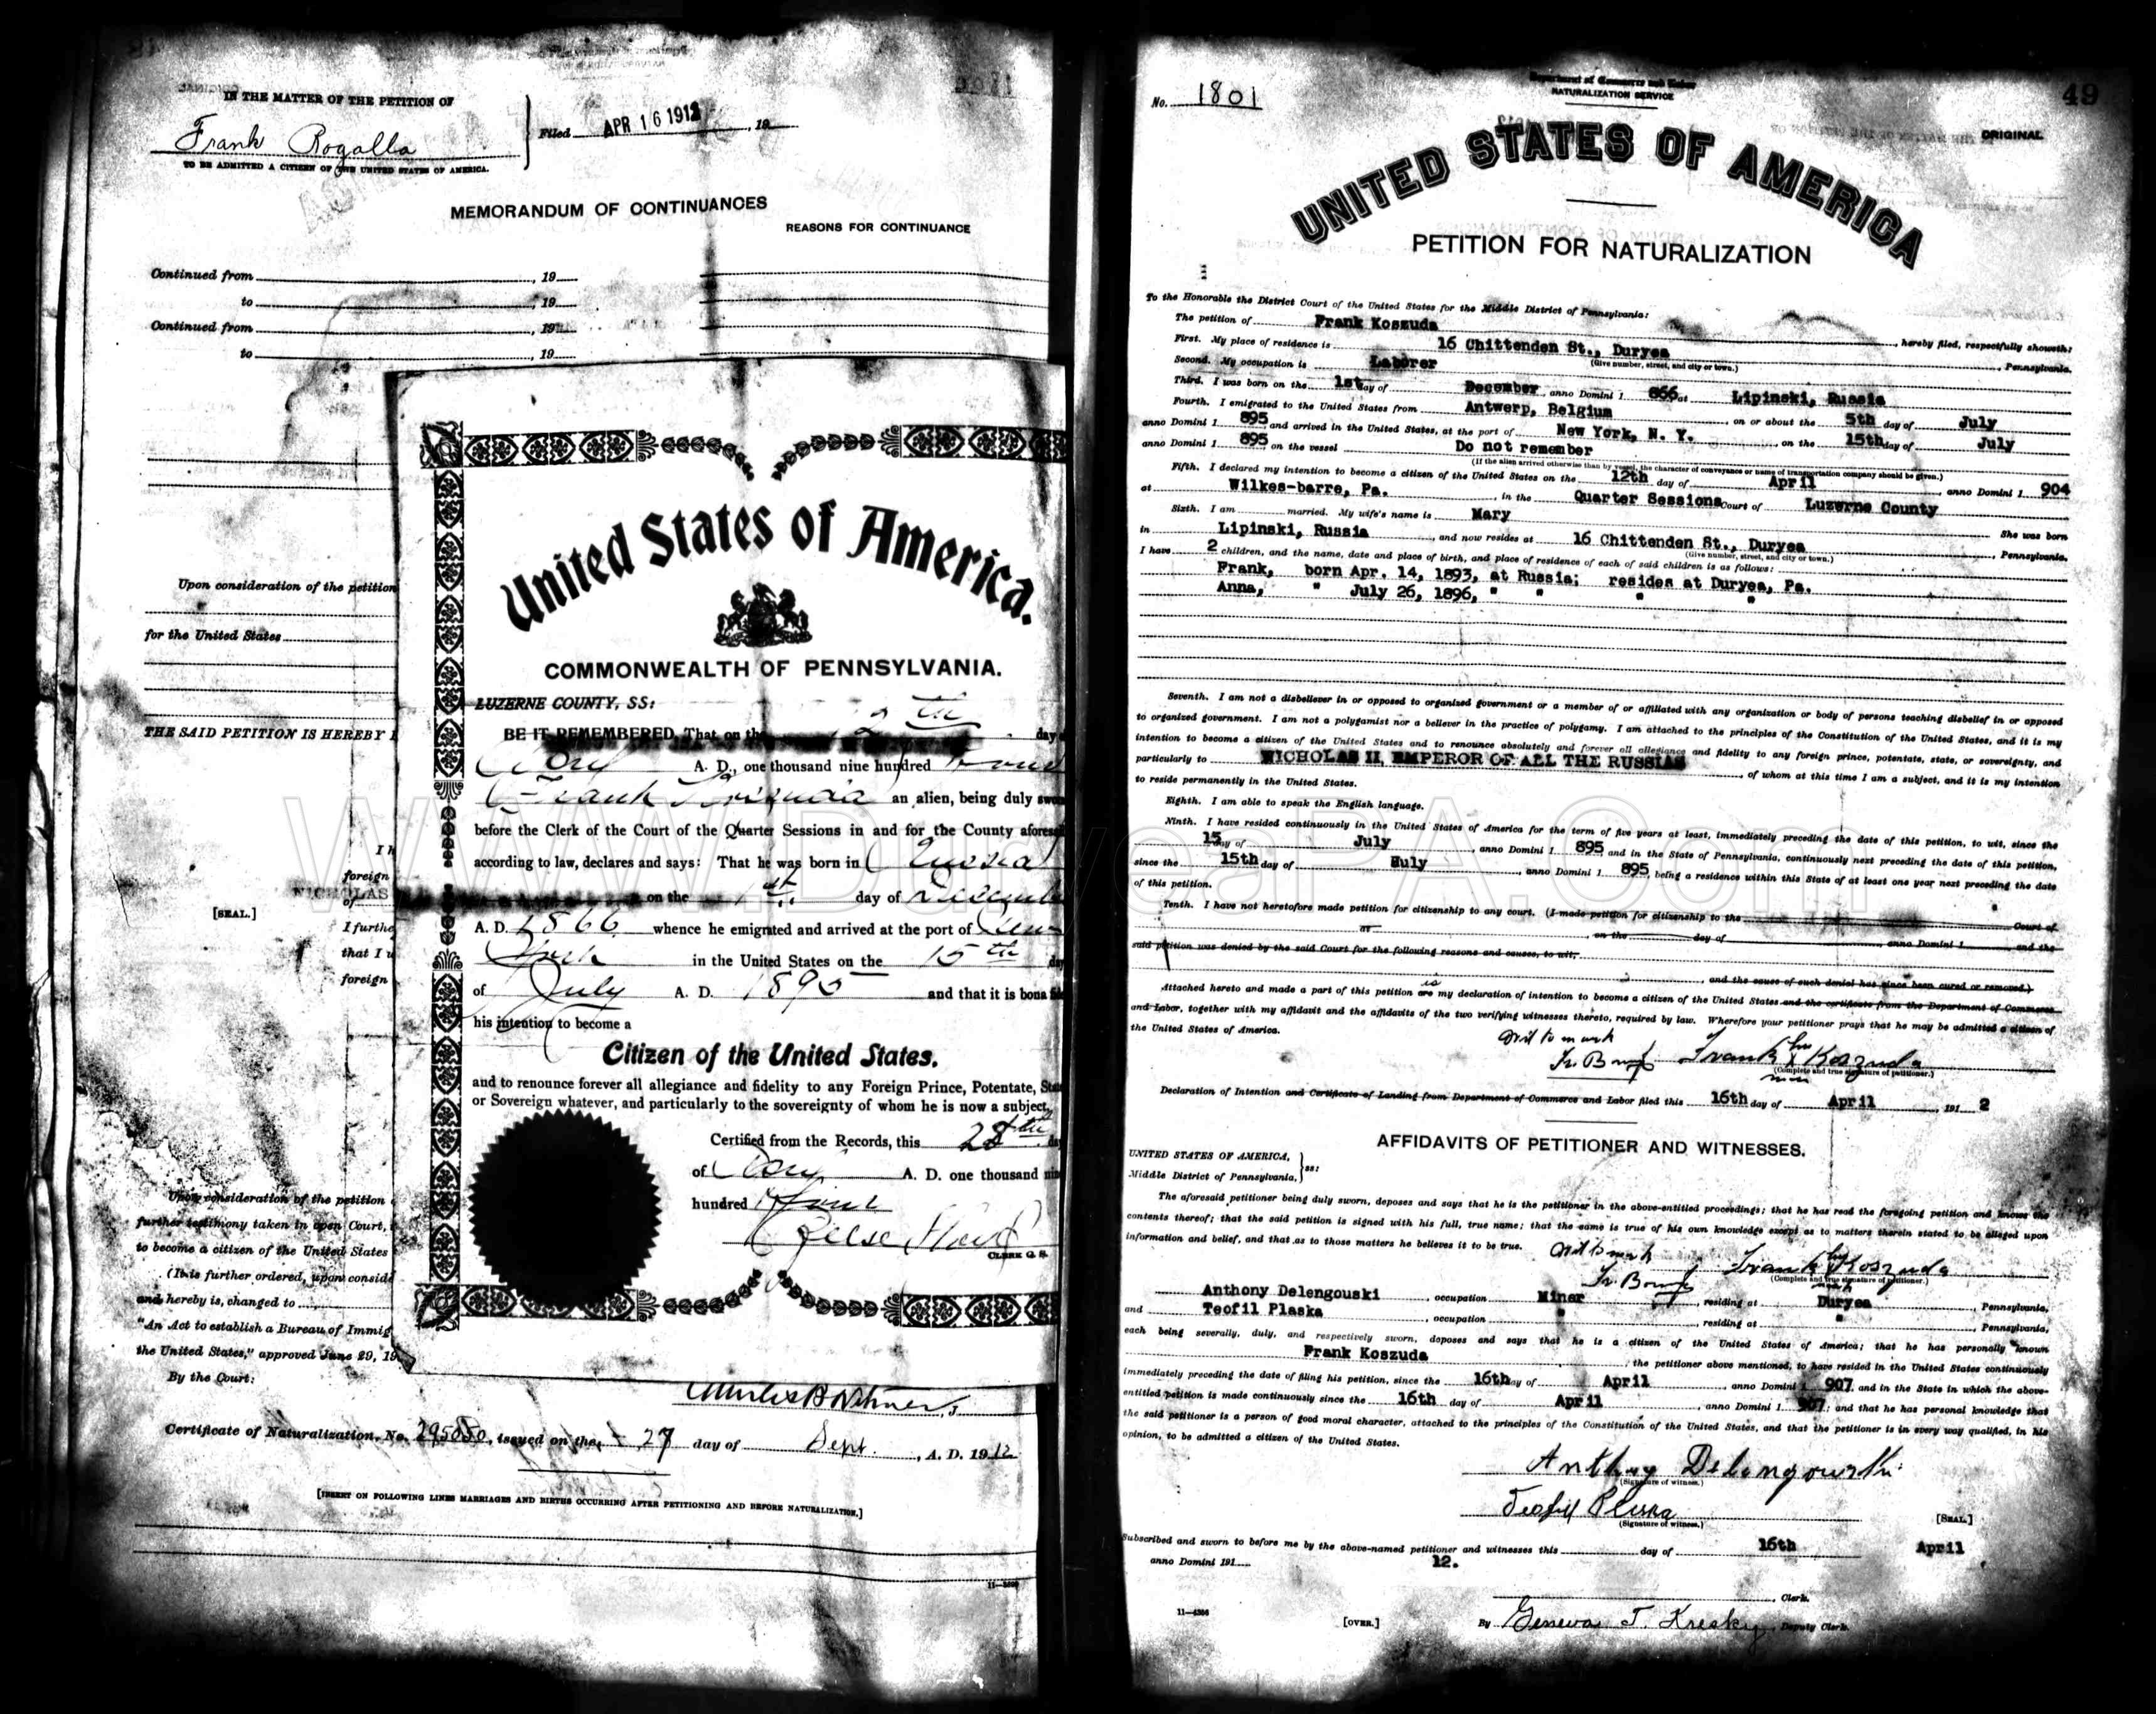 IN THE MATTER OF THE PETITION OF
Frank Rogalla
TO BE ADMITTED A CITIZEN OF THE UNITED STATES OF AMERICA.
Filed APR 16 1912, 19
MEMORANDUM OF CONTINUANCES
REASONS FOR CONTINUANCE
Continued from , 19
to , 19
Continued from , 19
to , 19
Upon consideration of the petition
for the United States
THE SAID PETITION IS HEREBY
I h
foreign
NICHOLAS
of
[SEAL.]
I furthe
that I
foreign
Upon consideration of the petition
further testimony taken in open Court,
to become a citizen of the United States
(It is further ordered, upon consid
and hereby is, changed to
"An Act to establish a Bureau of Immig
the United States," approved June 29, 19
By the Court:
Certificate of Naturalization, No. , issued on the 27 day of Sept. , A. D. 1912
[INSERT ON FOLLOWING LINES MARRIAGES AND BIRTHS OCCURRING AFTER PETITIONING AND BEFORE NATURALIZATION.]
United States of America.
COMMONWEALTH OF PENNSYLVANIA.
LUZERNE COUNTY, SS:
BE IT REMEMBERED, That on the 12th day
April A. D., one thousand nine hundred four
Frank Koszuda an alien, being duly sworn
before the Clerk of the Court of the Quarter Sessions in and for the County aforesaid
according to law, declares and says: That he was born in Russia
on the 1st day of December
A. D. 1866 whence he emigrated and arrived at the port of New
York in the United States on the 15th day
of July A. D. 1895 and that it is bona fide
his intention to become a
Citizen of the United States.
and to renounce forever all allegiance and fidelity to any Foreign Prince, Potentate, State
or Sovereign whatever, and particularly to the sovereignty of whom he is now a subject.
Certified from the Records, this 28th day
of A. D. one thousand nine
hundred
CLERK Q. S.
No. 1801
Department of Commerce and Labor
NATURALIZATION SERVICE
49
ORIGINAL
UNITED STATES OF AMERICA
PETITION FOR NATURALIZATION
To the Honorable the District Court of the United States for the Middle District of Pennsylvania:
The petition of Frank Koszuda , hereby filed, respectfully showeth:
First. My place of residence is 16 Chittenden St., Duryea , Pennsylvania.
(Give number, street, and city or town.)
Second. My occupation is Laborer
Third. I was born on the 1st day of December , anno Domini 1 866 at Lipinski, Russia
Fourth. I emigrated to the United States from Antwerp, Belgium on or about the 5th day of July
anno Domini 1 895 and arrived in the United States, at the port of New York, N. Y. , on the 15th day of July
anno Domini 1 895 on the vessel Do not remember
(If the alien arrived otherwise than by vessel, the character of conveyance or name of transportation company should be given.)
Fifth. I declared my intention to become a citizen of the United States on the 12th day of April , anno Domini 1 904
at Wilkes-barre, Pa. , in the Quarter Sessions Court of Luzerne County
Sixth. I am married. My wife's name is Mary She was born
in Lipinski, Russia and now resides at 16 Chittenden St., Duryea , Pennsylvania.
(Give number, street, and city or town.)
I have 2 children, and the name, date and place of birth, and place of residence of each of said children is as follows:
Frank, born Apr. 14, 1893, at Russia; resides at Duryea, Pa.
Anna, " July 26, 1896, " " " "
Seventh. I am not a disbeliever in or opposed to organized government or a member of or affiliated with any organization or body of persons teaching disbelief in or opposed
to organized government. I am not a polygamist nor a believer in the practice of polygamy. I am attached to the principles of the Constitution of the United States, and it is my
intention to become a citizen of the United States and to renounce absolutely and forever all allegiance and fidelity to any foreign prince, potentate, state, or sovereignty, and
particularly to NICHOLAS II, EMPEROR OF ALL THE RUSSIAS of whom at this time I am a subject, and it is my intention
to reside permanently in the United States.
Eighth. I am able to speak the English language.
Ninth. I have resided continuously in the United States of America for the term of five years at least, immediately preceding the date of this petition, to wit, since the
15 day of July , anno Domini 1 895 and in the State of Pennsylvania, continuously next preceding the date of this petition,
since the 15th day of Huly , anno Domini 1 895, being a residence within this State of at least one year next preceding the date
of this petition.
Tenth. I have not heretofore made petition for citizenship to any court. (I made petition for citizenship to the Court of
at , on the day of anno Domini 1 and the
said petition was denied by the said Court for the following reasons and causes, to wit,
, and the cause of such denial has since been cured or removed.)
Attached hereto and made a part of this petition are is my declaration of intention to become a citizen of the United States and the certificate from the Department of Commerce
and Labor, together with my affidavit and the affidavits of the two verifying witnesses thereto, required by law. Wherefore your petitioner prays that he may be admitted a citizen of
the United States of America.
Wit to mark
Frank his x mark Koszuda
(Complete and true signature of petitioner.)
Declaration of Intention and Certificate of Landing from Department of Commerce and Labor filed this 16th day of April , 191 2
AFFIDAVITS OF PETITIONER AND WITNESSES.
UNITED STATES OF AMERICA,
Middle District of Pennsylvania, } ss:
The aforesaid petitioner being duly sworn, deposes and says that he is the petitioner in the above-entitled proceedings; that he has read the foregoing petition and knows the
contents thereof; that the said petition is signed with his full, true name; that the same is true of his own knowledge except as to matters therein stated to be alleged upon
information and belief, and that as to those matters he believes it to be true.
Wit to mark
Frank his x mark Koszuda
(Complete and true signature of petitioner.)
Anthony Delengouski , occupation Miner , residing at Duryea , Pennsylvania,
and Teofil Plaska , occupation " , residing at " , Pennsylvania,
each being severally, duly, and respectively sworn, deposes and says that he is a citizen of the United States of America; that he has personally known
Frank Koszuda , the petitioner above mentioned, to have resided in the United States continuously
immediately preceding the date of filing his petition, since the 16th day of April , anno Domini 1 907 and in the State in which the above-
entitled petition is made continuously since the 16th day of April , anno Domini 1 907; and that he has personal knowledge that
the said petitioner is a person of good moral character, attached to the principles of the Constitution of the United States, and that the petitioner is in every way qualified, in his
opinion, to be admitted a citizen of the United States.
Anthony Delengowski
(Signature of witness.)
Teofil Pluska
(Signature of witness.)
[SEAL.]
Subscribed and sworn to before me by the above-named petitioner and witnesses this day of 16th April
anno Domini 191 12.
, Clerk.
11—4396
[OVER.]
By Geneva T. Kresky, Deputy Clerk.
www.DuryeaPA.com